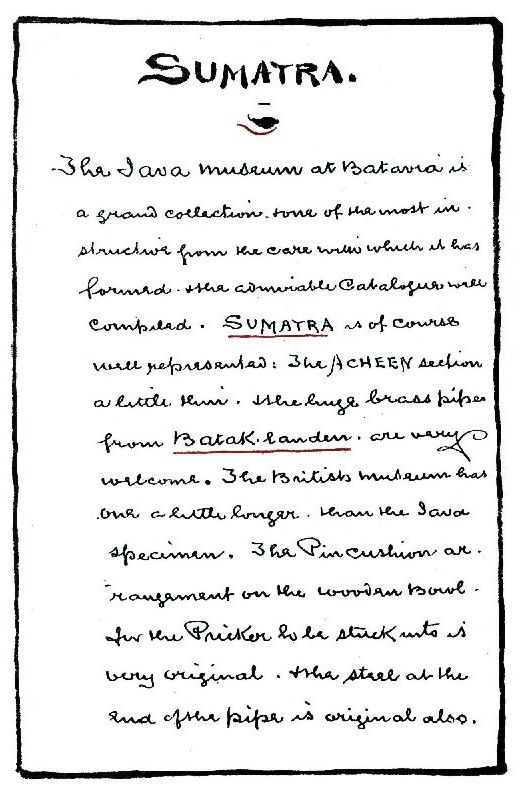 SUMATRA.
The Java Museum at Batavia is
a grand collection. & one of the most in-
structive from the care with which it has
formed. & the admirable Catalogue well
compiled. SUMATRA is of course
well represented: The ACHEEN section
a little thin. & the huge brass pipes
from Batak-landen. are very
welcome. The British Museum has
one a little longer. than the Java
specimen. The Pincushion ar-
rangement on the wooden Bowl.
for the Pricker to be stuck into is
very original. & the steel at the
end of the pipe is original also.